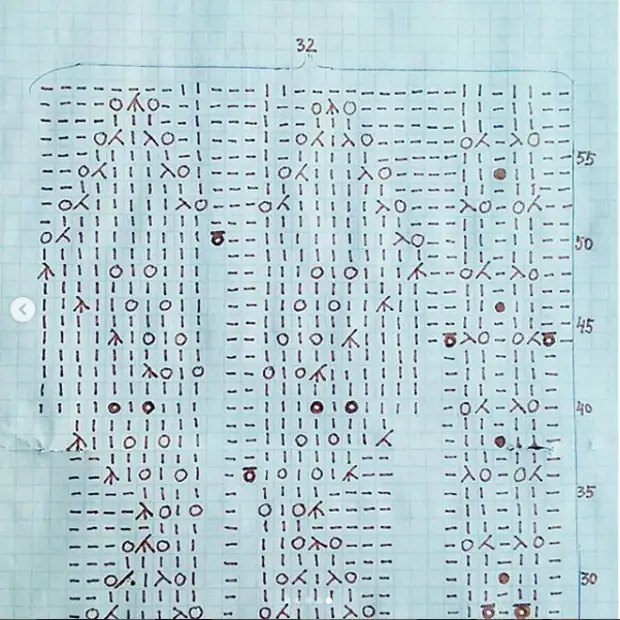 32
55
50
45
40
35
30